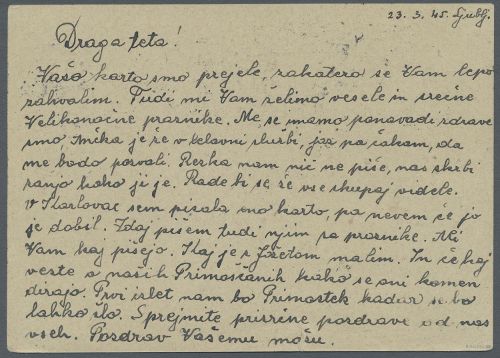 23. 3. 45. Ljublj.
Draga teta!
Vašo karto smo prejele, za katero se Vam lepo
zahvalim. Tudi mi Vam želimo vesele in srečne
Velikonočne praznike. Me se imamo po navadi, zdrave
smo. Anička je že v delavni službi, jaz pa čakam, da
me bodo pozvali. Berka nam nič ne piše, nas skrbi
zanjo kako ji je. Rade bi se že vse skupaj videle.
V Karlovac sem pisala eno karto, pa nevem če jo
je dobil. Zdaj pišem tudi njim za praznike. Ali
Vam kaj pišejo. Kaj je z Jožetom malim. In če kaj
veste o naših Primoščanih kako se oni komen
dirajo. Prvi izlet nam bo Primostek kadar se bo
lahko šlo. Sprejmite prisrčne pozdrave od nas
vseh. Pozdrav Vašemu možu.